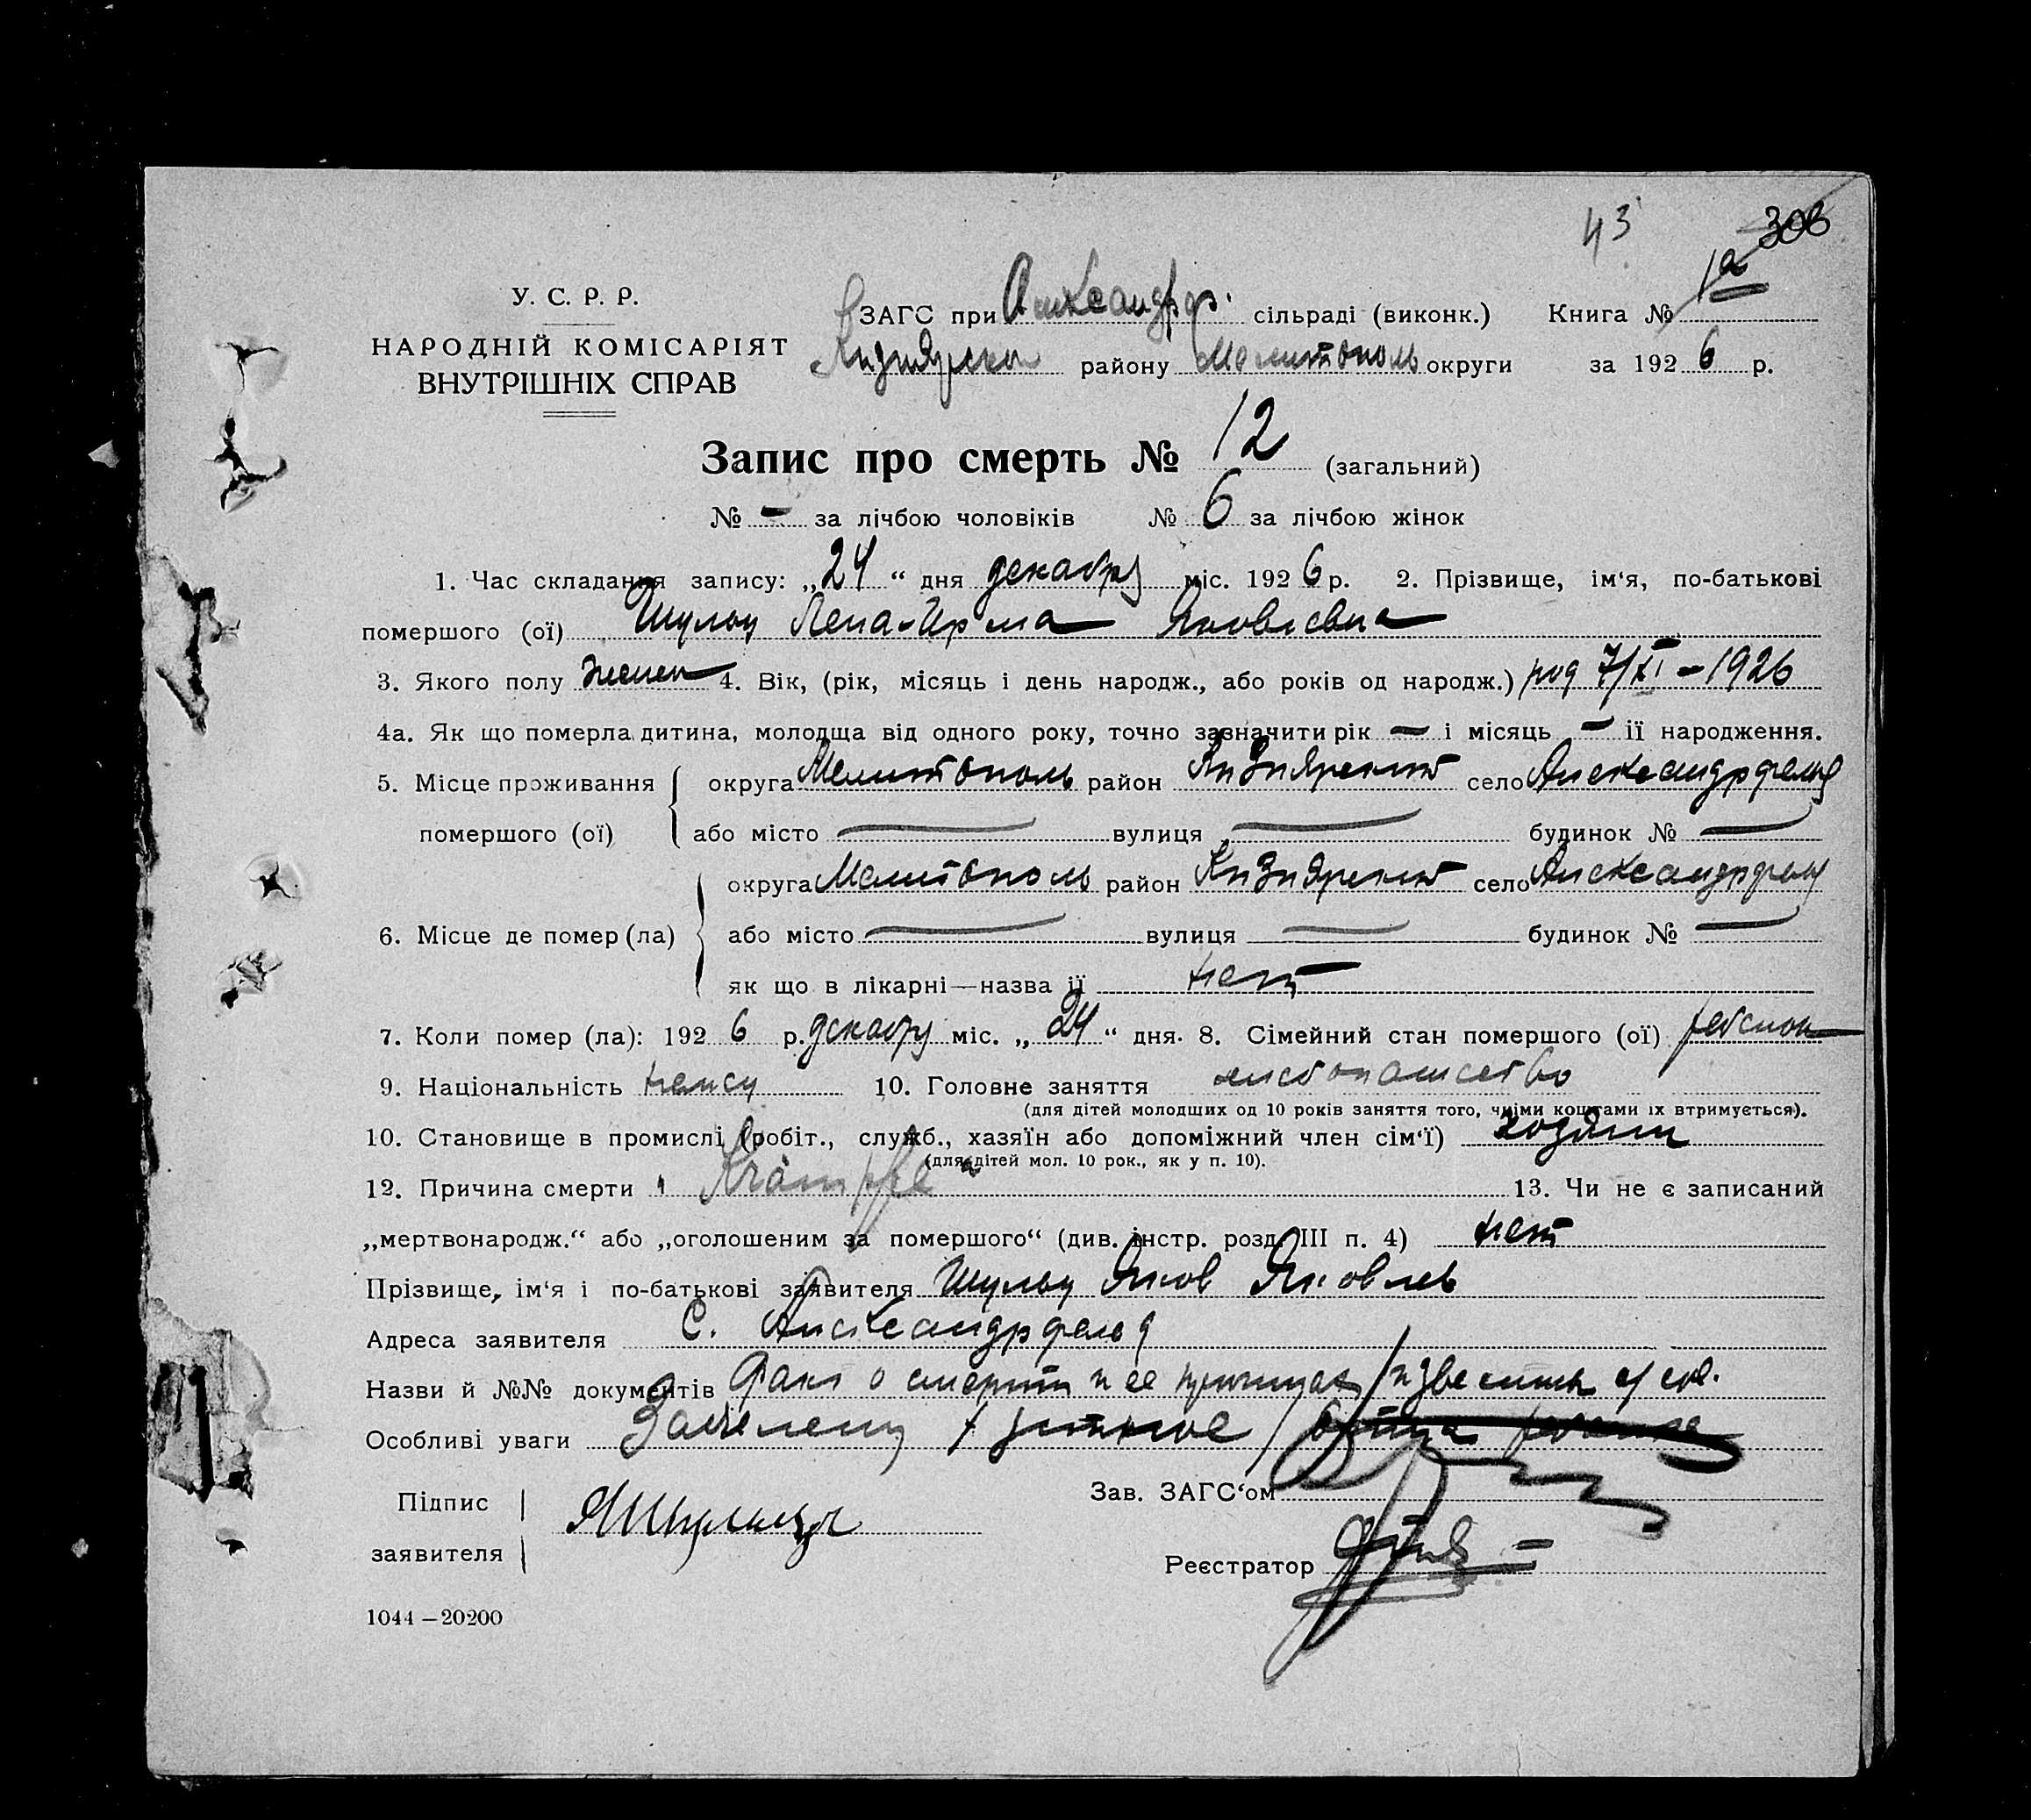 43 308
1а
У. С. Р. Р.
НАРОДНІЙ КОМІСАРІЯТ
ВНУТРІШНІХ СПРАВ
ЗАГС при Александрф. сільраді (виконк.) Книга №
району Мелитополь округи за 1926 р.
Запис про смерть № 12 (загальний)
№ - за лічбою чоловіків № 6 за лічбою жінок
1. Час складання запису: „24“ дня декабря міс. 1926 р. 2. Прізвище, ім‘я, по-батькові
помершого (ої) Шульц Лена-Ирма Яковлевна
3. Якого полу женск 4. Вік, (рік, місяць і день народж., або років од народж.) род 7/XI - 1926
4а. Як що померла дитина, молодща від одного року, точно зазначити рік - і місяць - ії народження.
5. Місце проживання округа Мелитополь район Кизиярский село Александрфельд
помершого (ої) або місто — вулиця — будинок № —
округа Мелитополь район Кизиярский село Александрфельд
6. Місце де помер (ла) або місто — вулиця — будинок № —
як що в лікарні—назва ії нет
7. Коли помер (ла): 1926 р. декабря міс. „24“ дня. 8. Сімейний стан помершого (ої)
9. Національність немец 10. Головне заняття хлебопашество
(для дітей молодщих од 10 років заняття того, чиїми коштами їх втримується).
10. Становище в промислі (робіт., служб., хазяїн або допоміжний член сім‘ї) хозяин
(для дітей мол. 10 рок., як у п. 10).
12. Причина смерти Krämpfe 13. Чи не є записаний
„мертвонародж.“ або „оголошеним за помершого“ (див. інстр. розд. III п. 4) нет
Прізвище, ім‘я і по-батькові заявителя Шульц Яков Яковлев
Адреса заявителя с. Александрфельд
Назви й №№ документів Факт о смерти и ее причинах
Особливі уваги
Підпис Зав. ЗАГС‘ом
заявителя ЯШульц
Реєстратор
1044—20200